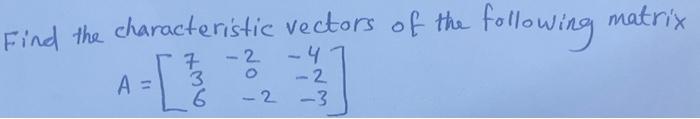 Find the characteristic vectors of the following matrix
7 -2 -4
A = [ 3 0 -2 ]
6 -2 -3